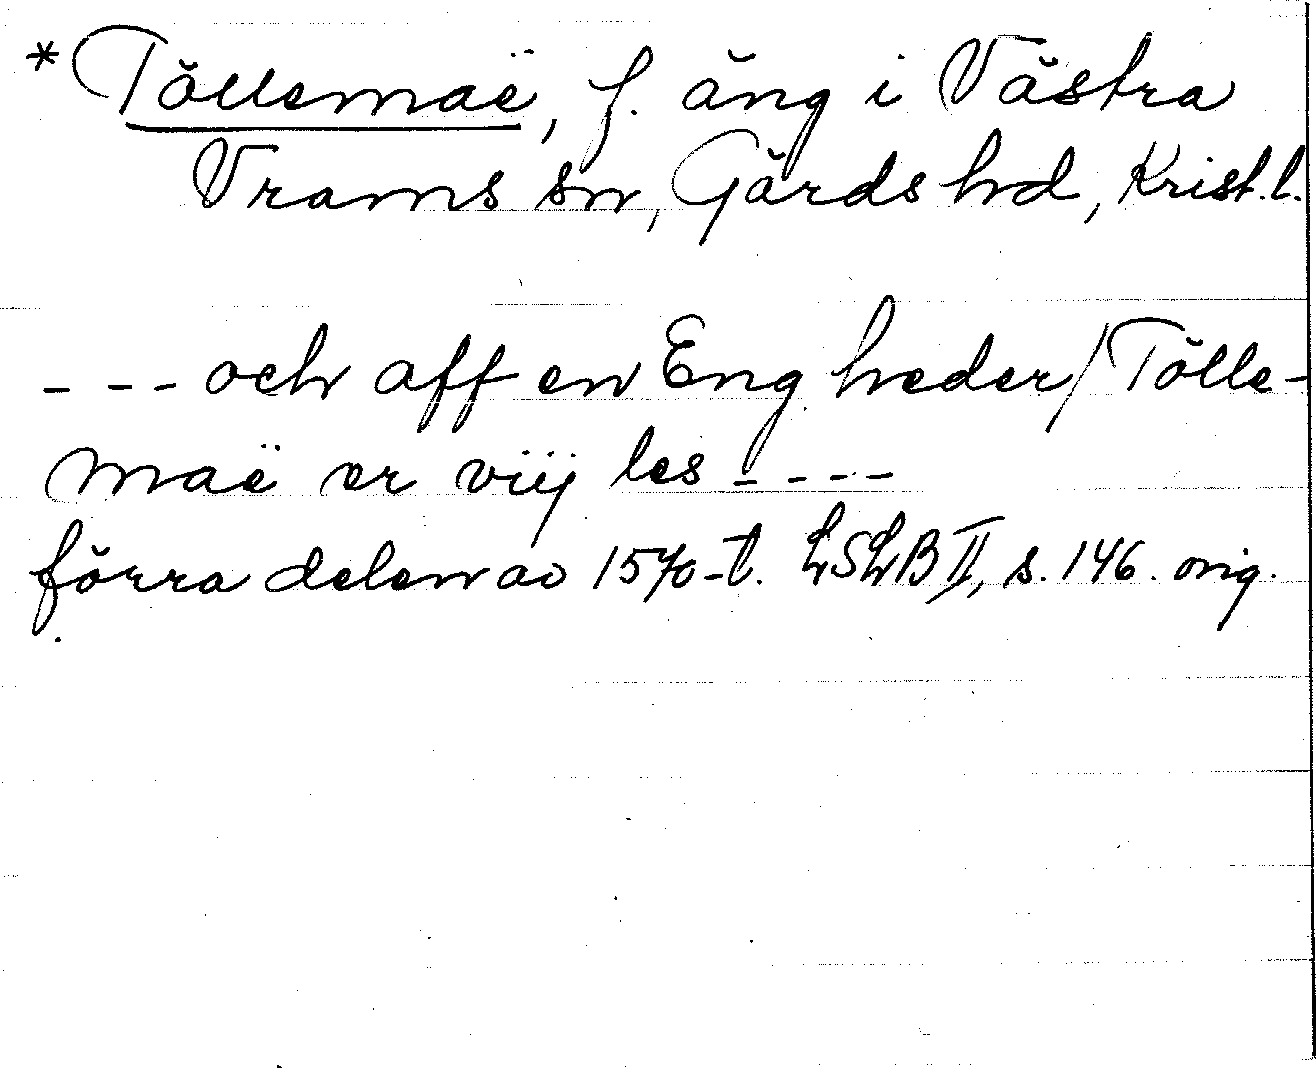 * Töllemaë, f. äng i Västra
Vrams sn, Gärds hd, Krist. l.
- - - och aff en Eng heder / Tölle-
maë er viij les - - - -
förra delen av 1570-t. LSLB II, s. 146. orig.